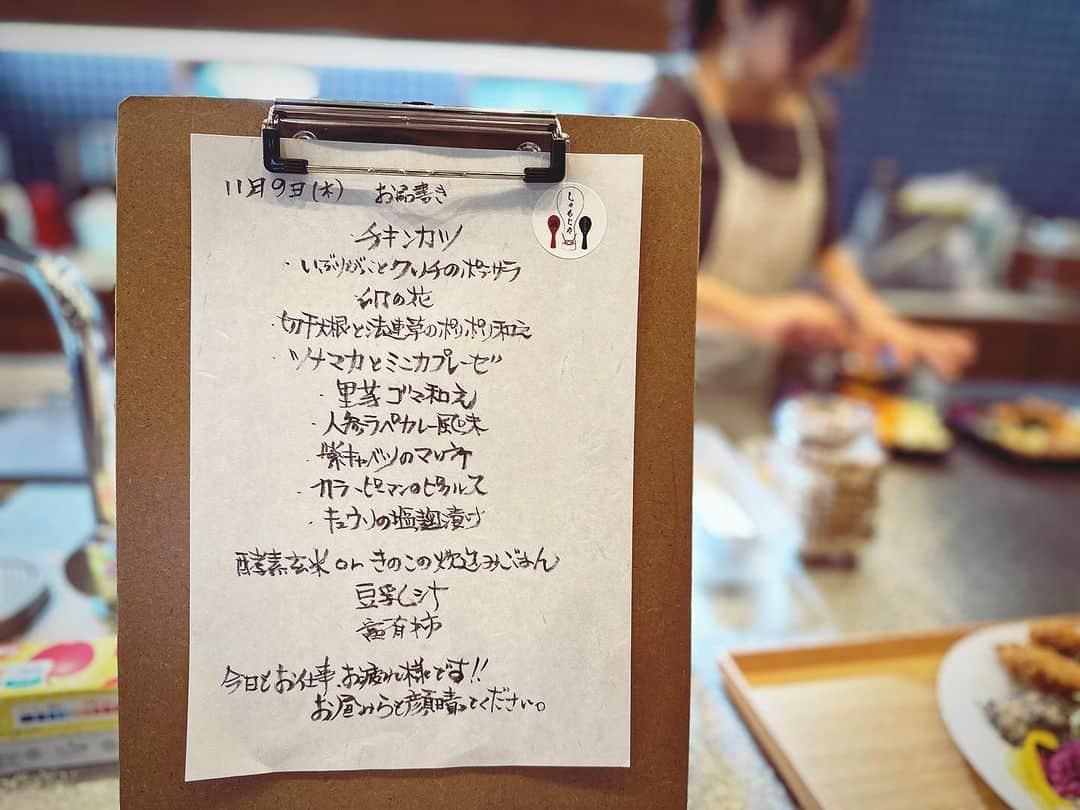 11月9日(木) お品書き
しゃもじや
・チキンカツ
・いぶりがっことクリチのポテサラ
・卯の花
・切干大根と法連草のポリポリ和え
・ツナマカとミニカプレーゼ
・里芋ゴマ和え
・人参ラペカレー風味
・紫キャベツのマリネ
・カラーピーマンのピクルス
・キュウリの塩麹漬け
酵素玄米 or きのこの炊込みごはん
豆乳汁
富有柿
今日もお仕事、お疲れ様です!!
お昼からも顔晴ってください。